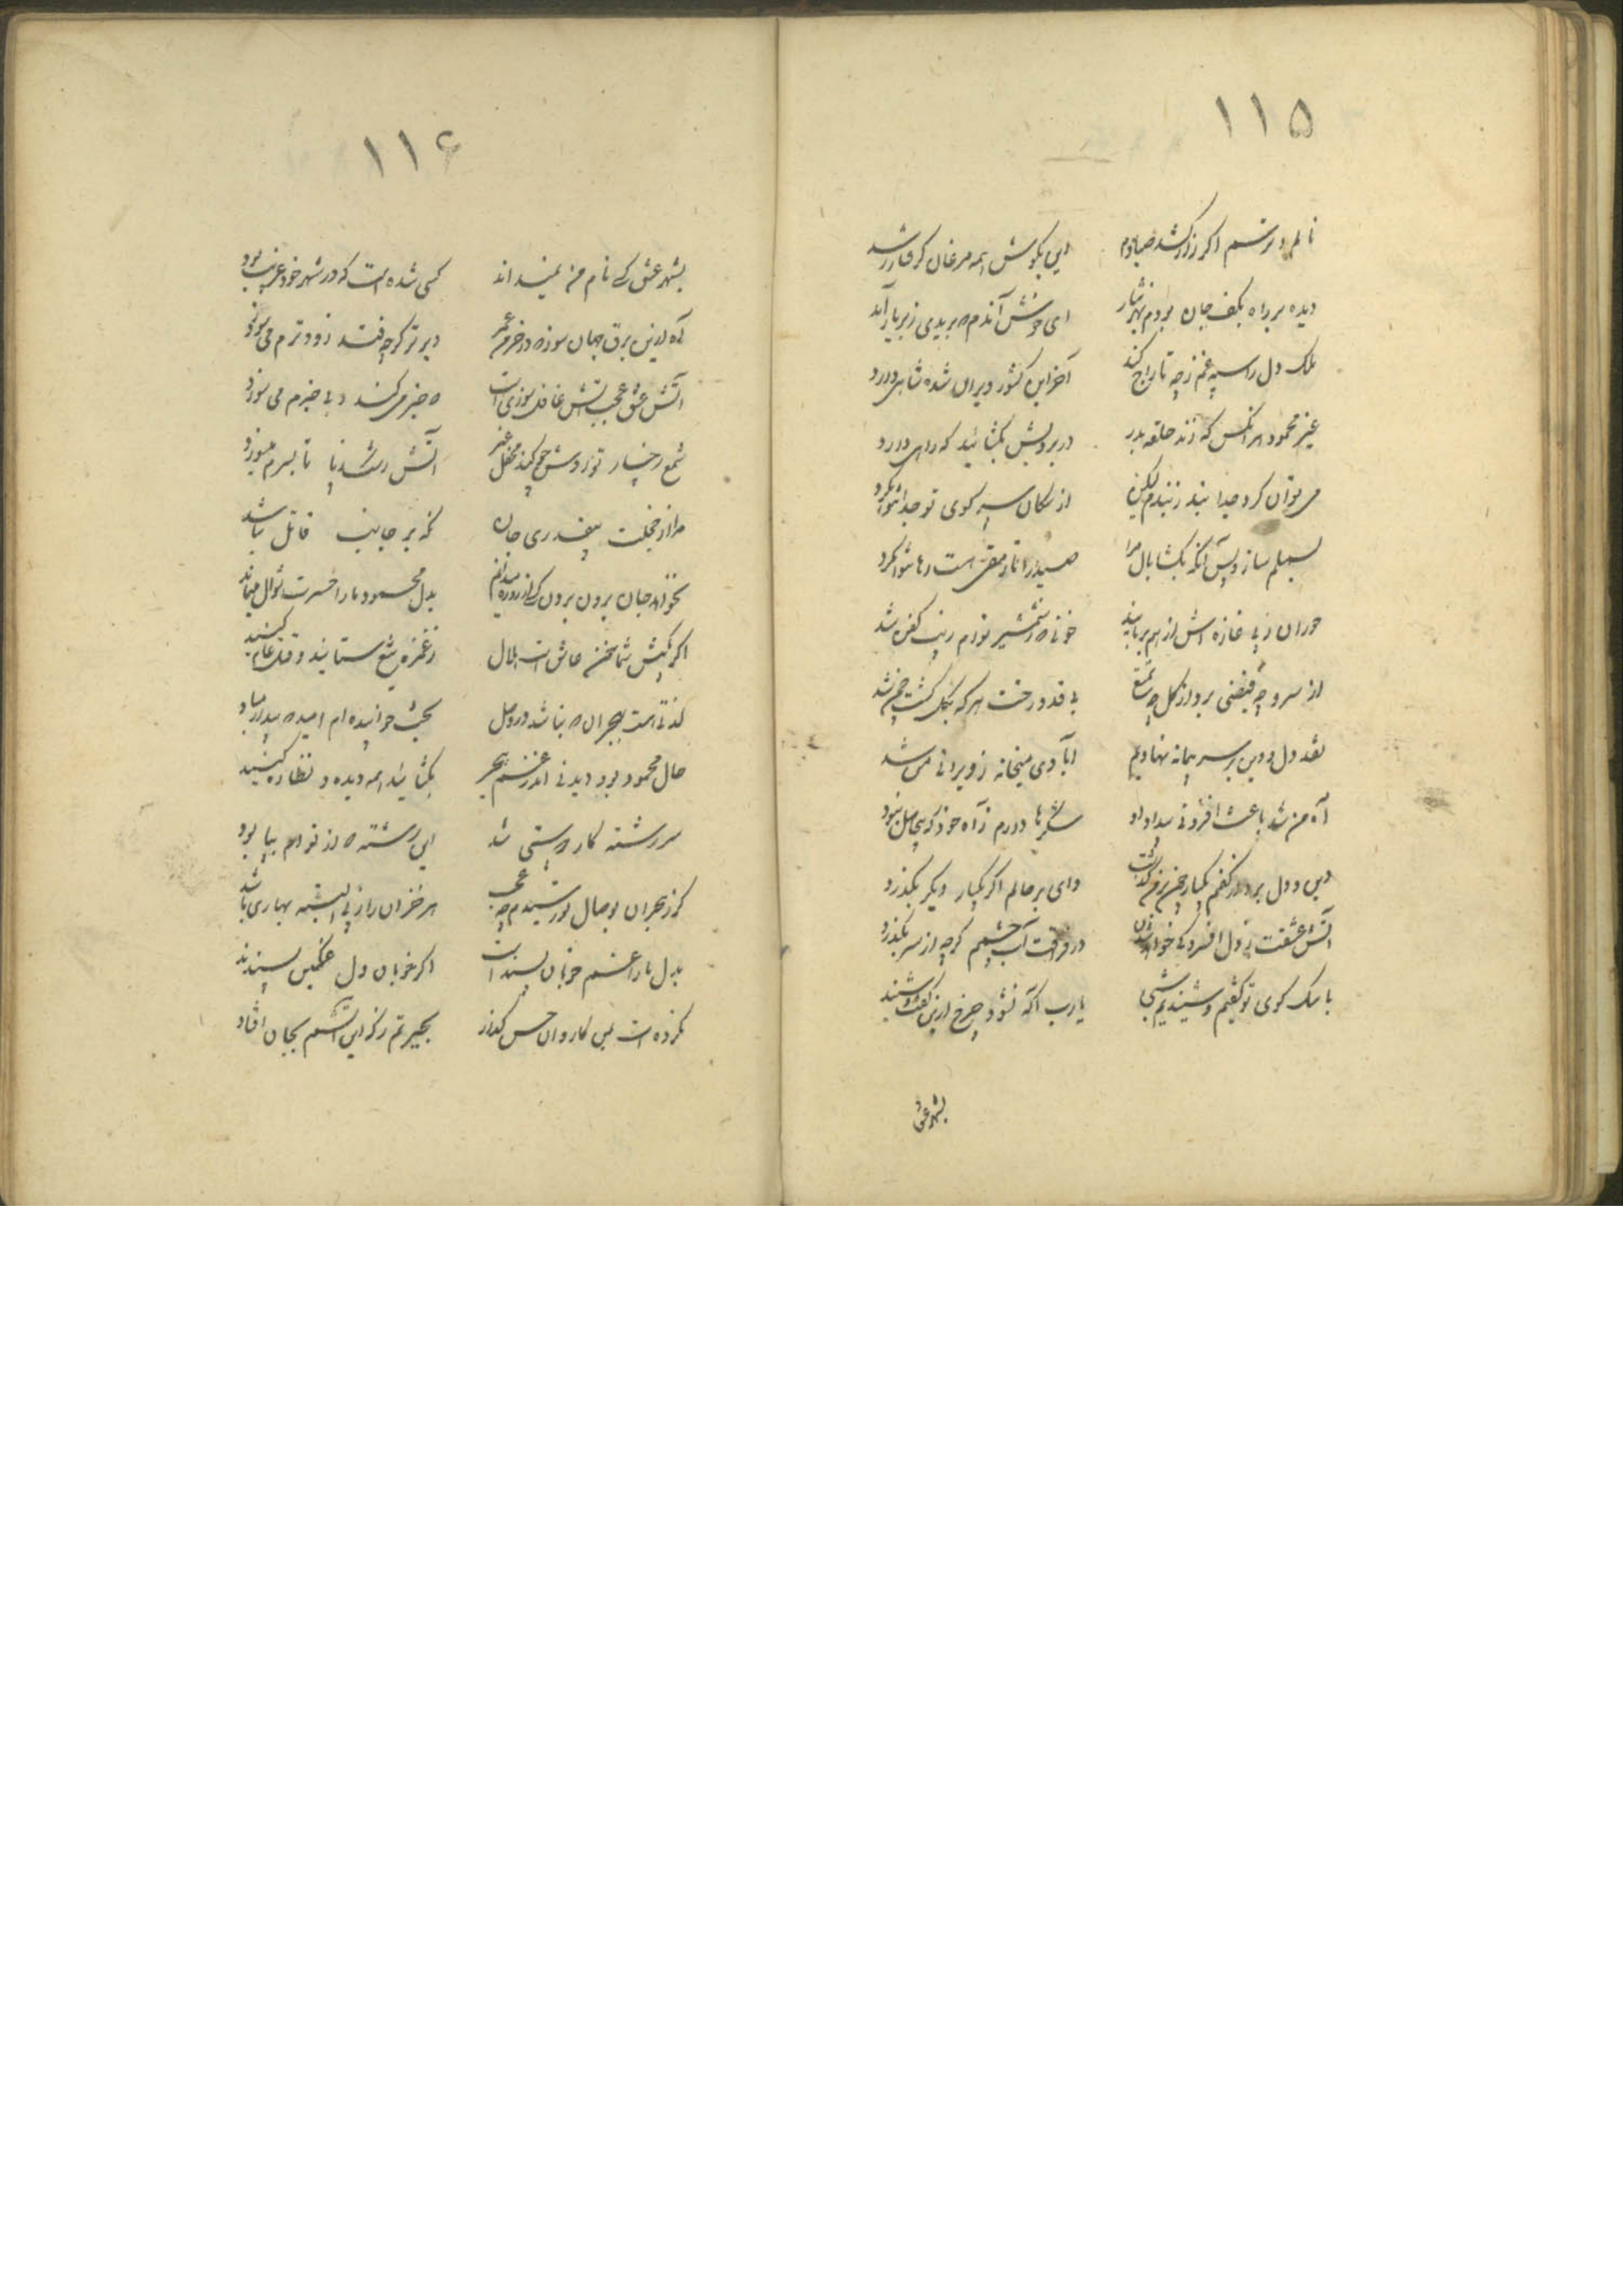 ۱۱۵
نالم و ترسم اگر زار کشد صیادم
این بگوش همه مرغان گرفتار رسد
دیده بر راه بکف جان بودم بهر نثار
ای خوش آندم که بریدی ز بر یار آید
ملک دل را سپه غم ز چه تاراج کند
آخر این کشور ویران شده شاهی دارد
غیر محمود هر آنکس که زند حلقه بدر
در برویش بگشائید که راهی دارد
می توان کرد جدا بند ز بندم لیکن
از سگان سر کوی تو جدا نتوان کرد
بسملم ساز و پس آنگه بگشا بال مرا
صید را تا رمقی هست رها نتوان کرد
حوران ز پی غازه اش از هم بربایند
خونی که ز شمشیر توام زیب کفن شد
از سرو چه فیضی برد از گل چه تمتع
بی قد و رخت هر که بگل گشت چمن شد
نقد دل و دین بر سر پیمانه نهادیم
آبادی میخانه ز ویرانی من شد
آه من شد باعث افزونی بیداد او
شکرها دارم ز آه خود که بیحاصل نبود
دین و دل برد از کفم یکبار چون بر من گذشت
وای بر حالم اگر یکبار دیگر بگذرد
آتش عشقت ز دل افسردگی خواهد
در فراقت آب چشمم گرچه از سر بگذرد
با سگ کوی تو گفتیم و شنیدیم شبی
یارب آگه نشود چرخ ازین گفت و شنید
بشهر عشق
۱۱۶
بشهر عشق کسی نام من نمیداند
کسی شده است که در شهر خود غریب بود
آه ازین برق جهان سوز که در خرمن عمر
دیرتر گرچه فتد زودترم می سوزد
آتش عشق عجب آتش غافل سوزی است
که خبر می کند و بی خبرم می سوزد
شمع رخسار تو زد دوش چو در محفل غیر
آتش رشک ز پا تا بسرم میسوزد
مرا از خجلت بیقدری جان
نگه بر جانب قاتل نباشد
نخواهد جان برون بردن کسی از
بدل محمود ما را حسرت
اگر بکیش شما خون عاشق است حلال
ز غمزه تیغ ستانید و قتل عام کنید
لذتی هست بهجران که نباشد در وصل
بحث خوانیده ام امید که بیدار مباد
حال محمود بود دیدنی اندر غم هجر
بگشائید همه دیده و نظاره کنید
سررشته کار ما به پستی شد
این رشته که از تو ام بپا بود
گر ز هجران بوصال تو رسیدم چه عجب
هر خزان را ز پی البته بهاری باشد
بدل ما را غم خوبان پسند است
اگر خوبان دل غمگین پسندند
نکرده است بمن کاروان حسن گذر
بحیرتم ز که این آتشم بجان افتاد